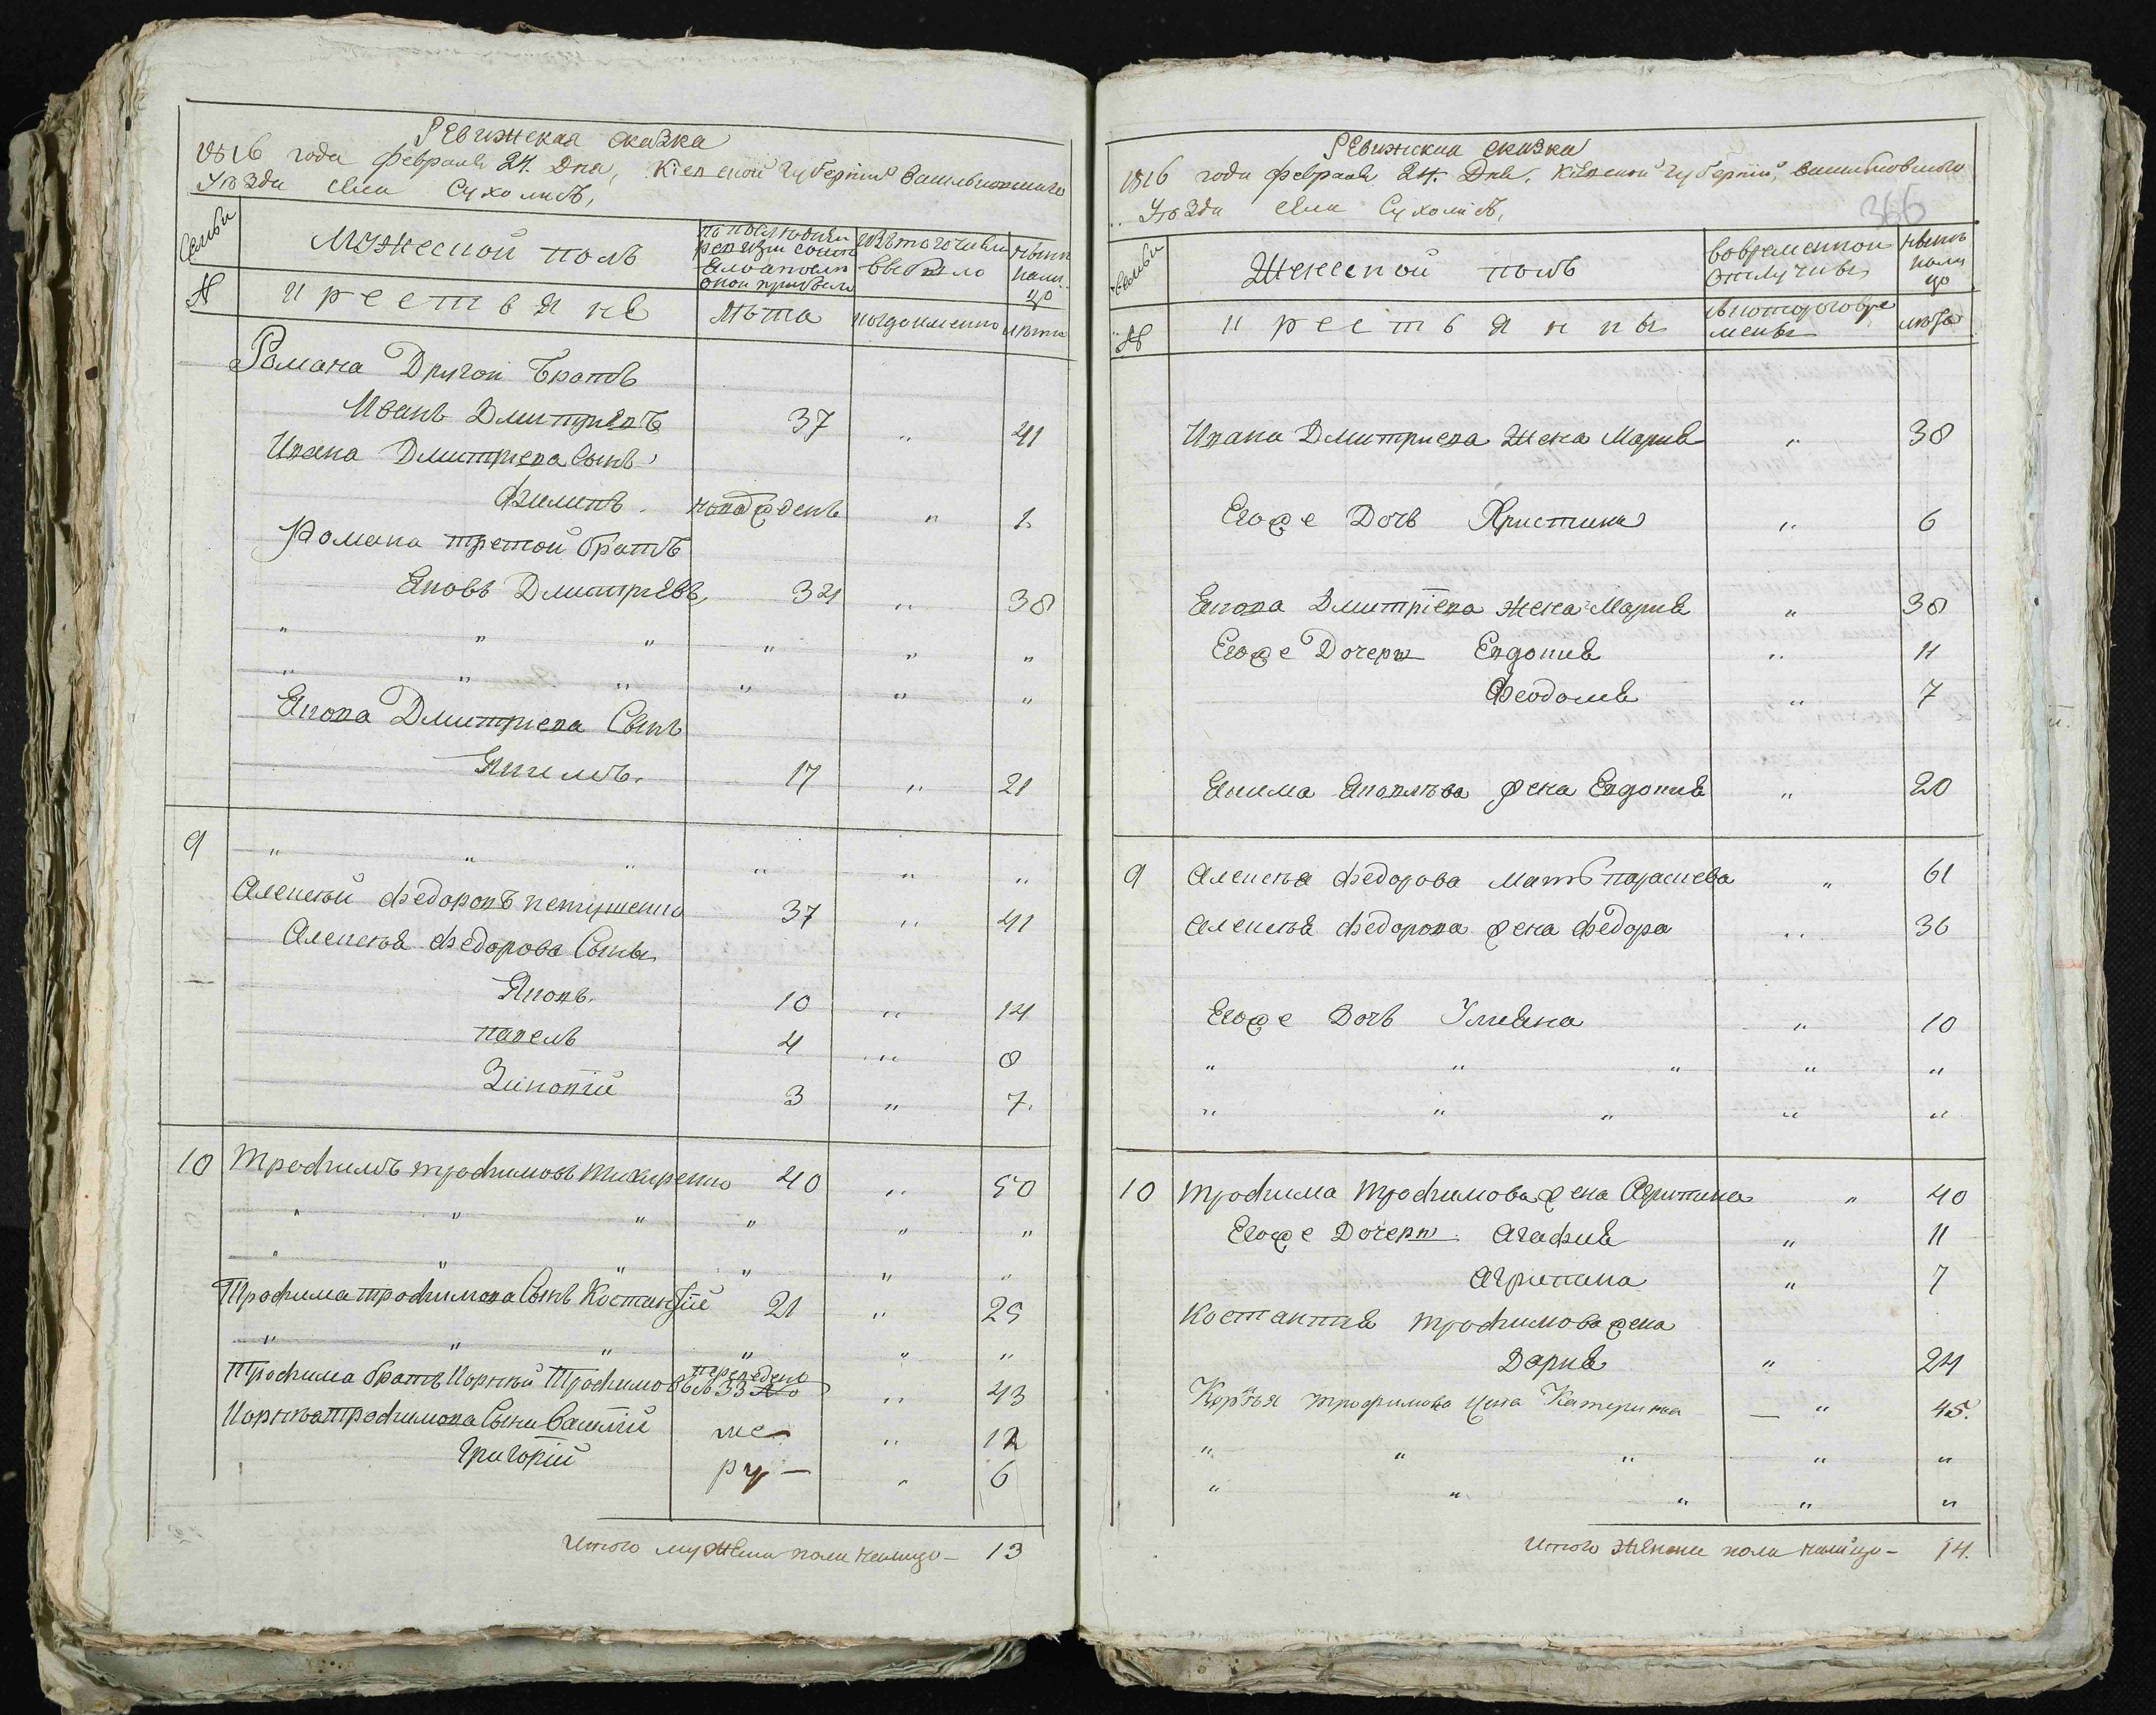 Ревижская сказка
1816 года февраля 24. Дня, Кіевской губерніи васильковского
Уѣзда села Сухолисъ,
Семьи
Мужеской полъ
по последней ревизіи состояло
выбыло
нынѣ налицо
№
крестьяне
Лѣта
когда именно
лѣта
Романа Другой братъ
Иванъ Дмитриевъ 37 " 41
Ивана Дмитриева Сынъ
Филипъ. новорожденъ " 1.
Романа третой братъ
Яковъ Дмитріевъ 34 " 38
" " " " " "
" " " " " "
Якова Дмитриева Сынъ
Якимъ. 17 " 21
9 " " " " " "
Алексѣй Федоровъ петушенко 37 " 41
Алексѣя Федорова Сыны
Яковъ. 10 " 14
павелъ 4 " 8
Зиновій 3 " 7.
10 Трофимъ трофимовъ 40 " 50
" " " " " "
" " " " " "
Трофима трофимова Сынъ Костантій 21 " 25
" " " " " "
Трофима братъ Корнѣй Трофимовъ переведенъ 33 " 43
Корнѣя трофимова Сыны Василій ме- " 12
Григорій ру- " 6
Итого мужеска пола налицо- 13
Ревижская сказка
1816 года февраля 24. Дня. Кіевской губерніи, васильковского
Уѣзда села Сухолисъ,
366
Семьи
Женской полъ
вовременной отлучкѣ
нынѣ налицо
№
крестьянки
с котораго времены
лѣта
Ивана Дмитриева Жена Мария " 38
Егоже Дочь Христина " 6
Якова Дмитріева жена Мария " 38
Егоже Дочери Евдокия " 11
Феодосия " 7
Якима Яковлева жена Евдокия " 20
9 Алексѣя Федорова мать параскева " 61
Алексѣя Федорова жена Федора " 36
Егоже Дочь Улияна " 10
" " " " "
" " " " "
10 трофима трофимова жена Агрипина " 40
Егоже Дочери Агафия " 11
Агрипина " 7
Костантия трофимова жена
Дария " 24
Корнѣя трофимова жена Катерина — " 45.
" " " " "
" " " " "
Итого женска пола налицо- 14.